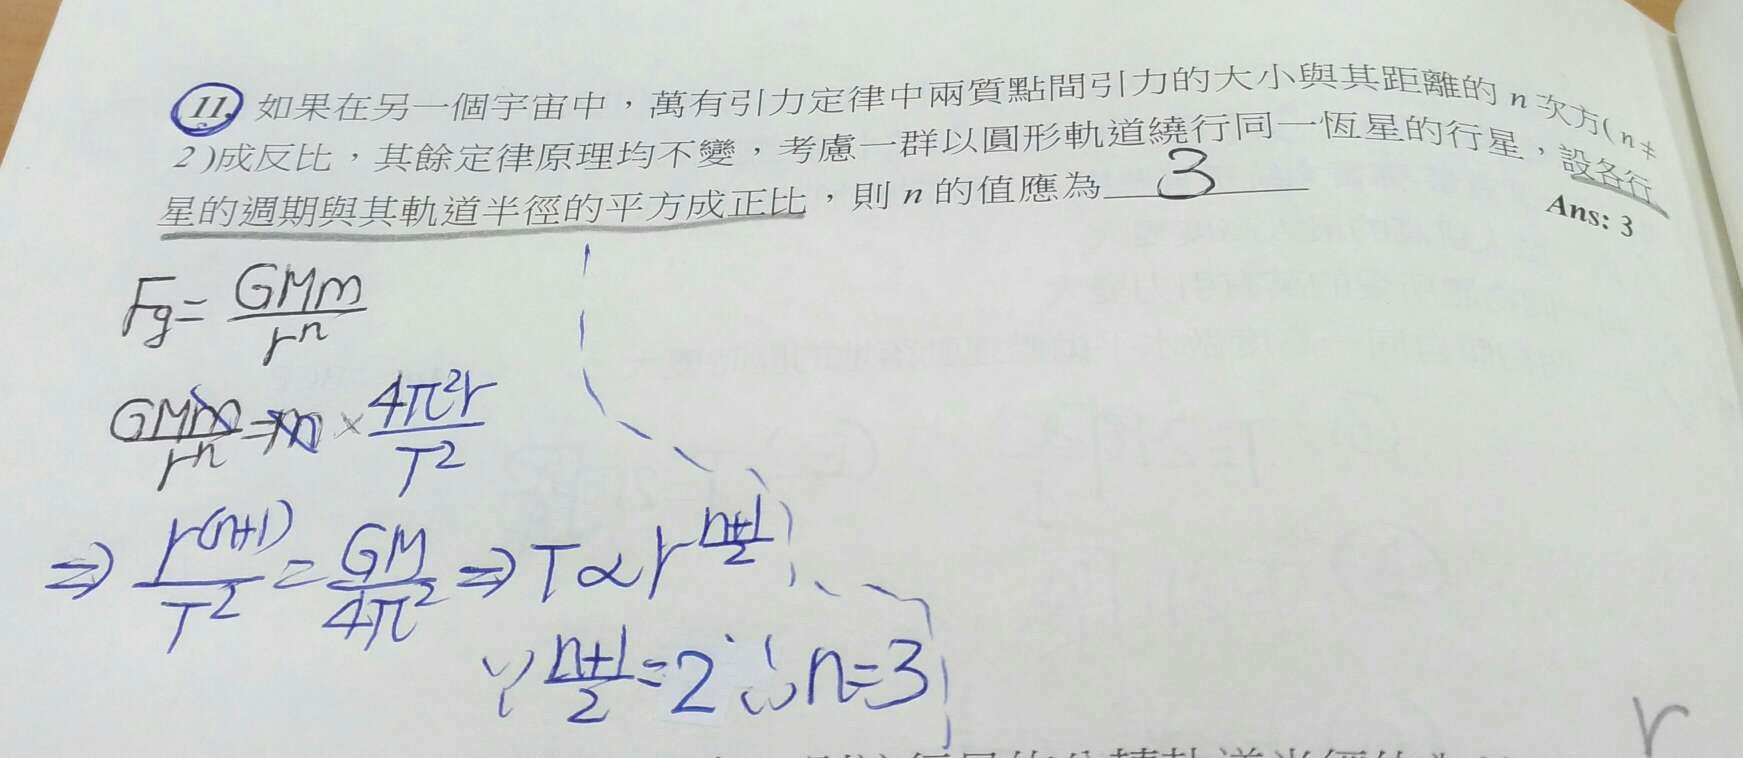 11. 如果在另一個宇宙中，萬有引力定律中兩質點間引力的大小與其距離的 n 次方( n ≠
2 )成反比，其餘定律原理均不變，考慮一群以圓形軌道繞行同一恆星的行星，設各行
星的週期與其軌道半徑的平方成正比，則 n 的值應為 3
Ans: 3
Fg = GMm / r^n
GMm / r^n = m × 4π²r / T²
⇒ r^(n+1) / T² = GM / 4π² ⇒ T ∝ r^((n+1)/2)
∵ (n+1)/2 = 2 ∴ n = 3
r